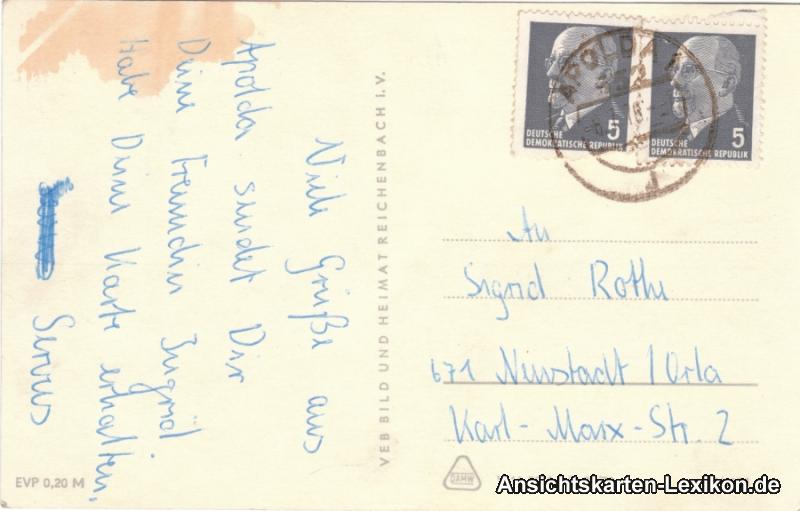 Viele Grüße aus
Apolda sendet Dir
Deine Freundin Ingrid
Habe Deine Karte erhalten.
Servus
EVP 0,20 M
VEB BILD UND HEIMAT REICHENBACH I. V.
APOLDA
DEUTSCHE
DEMOKRATISCHE REPUBLIK
5
DEUTSCHE
DEMOKRATISCHE REPUBLIK
5
An
Sigrid Rothe
671 Neustadt / Orla
Karl-Marx-Str. 2
DAMW
Ansichtskarten-Lexikon.de